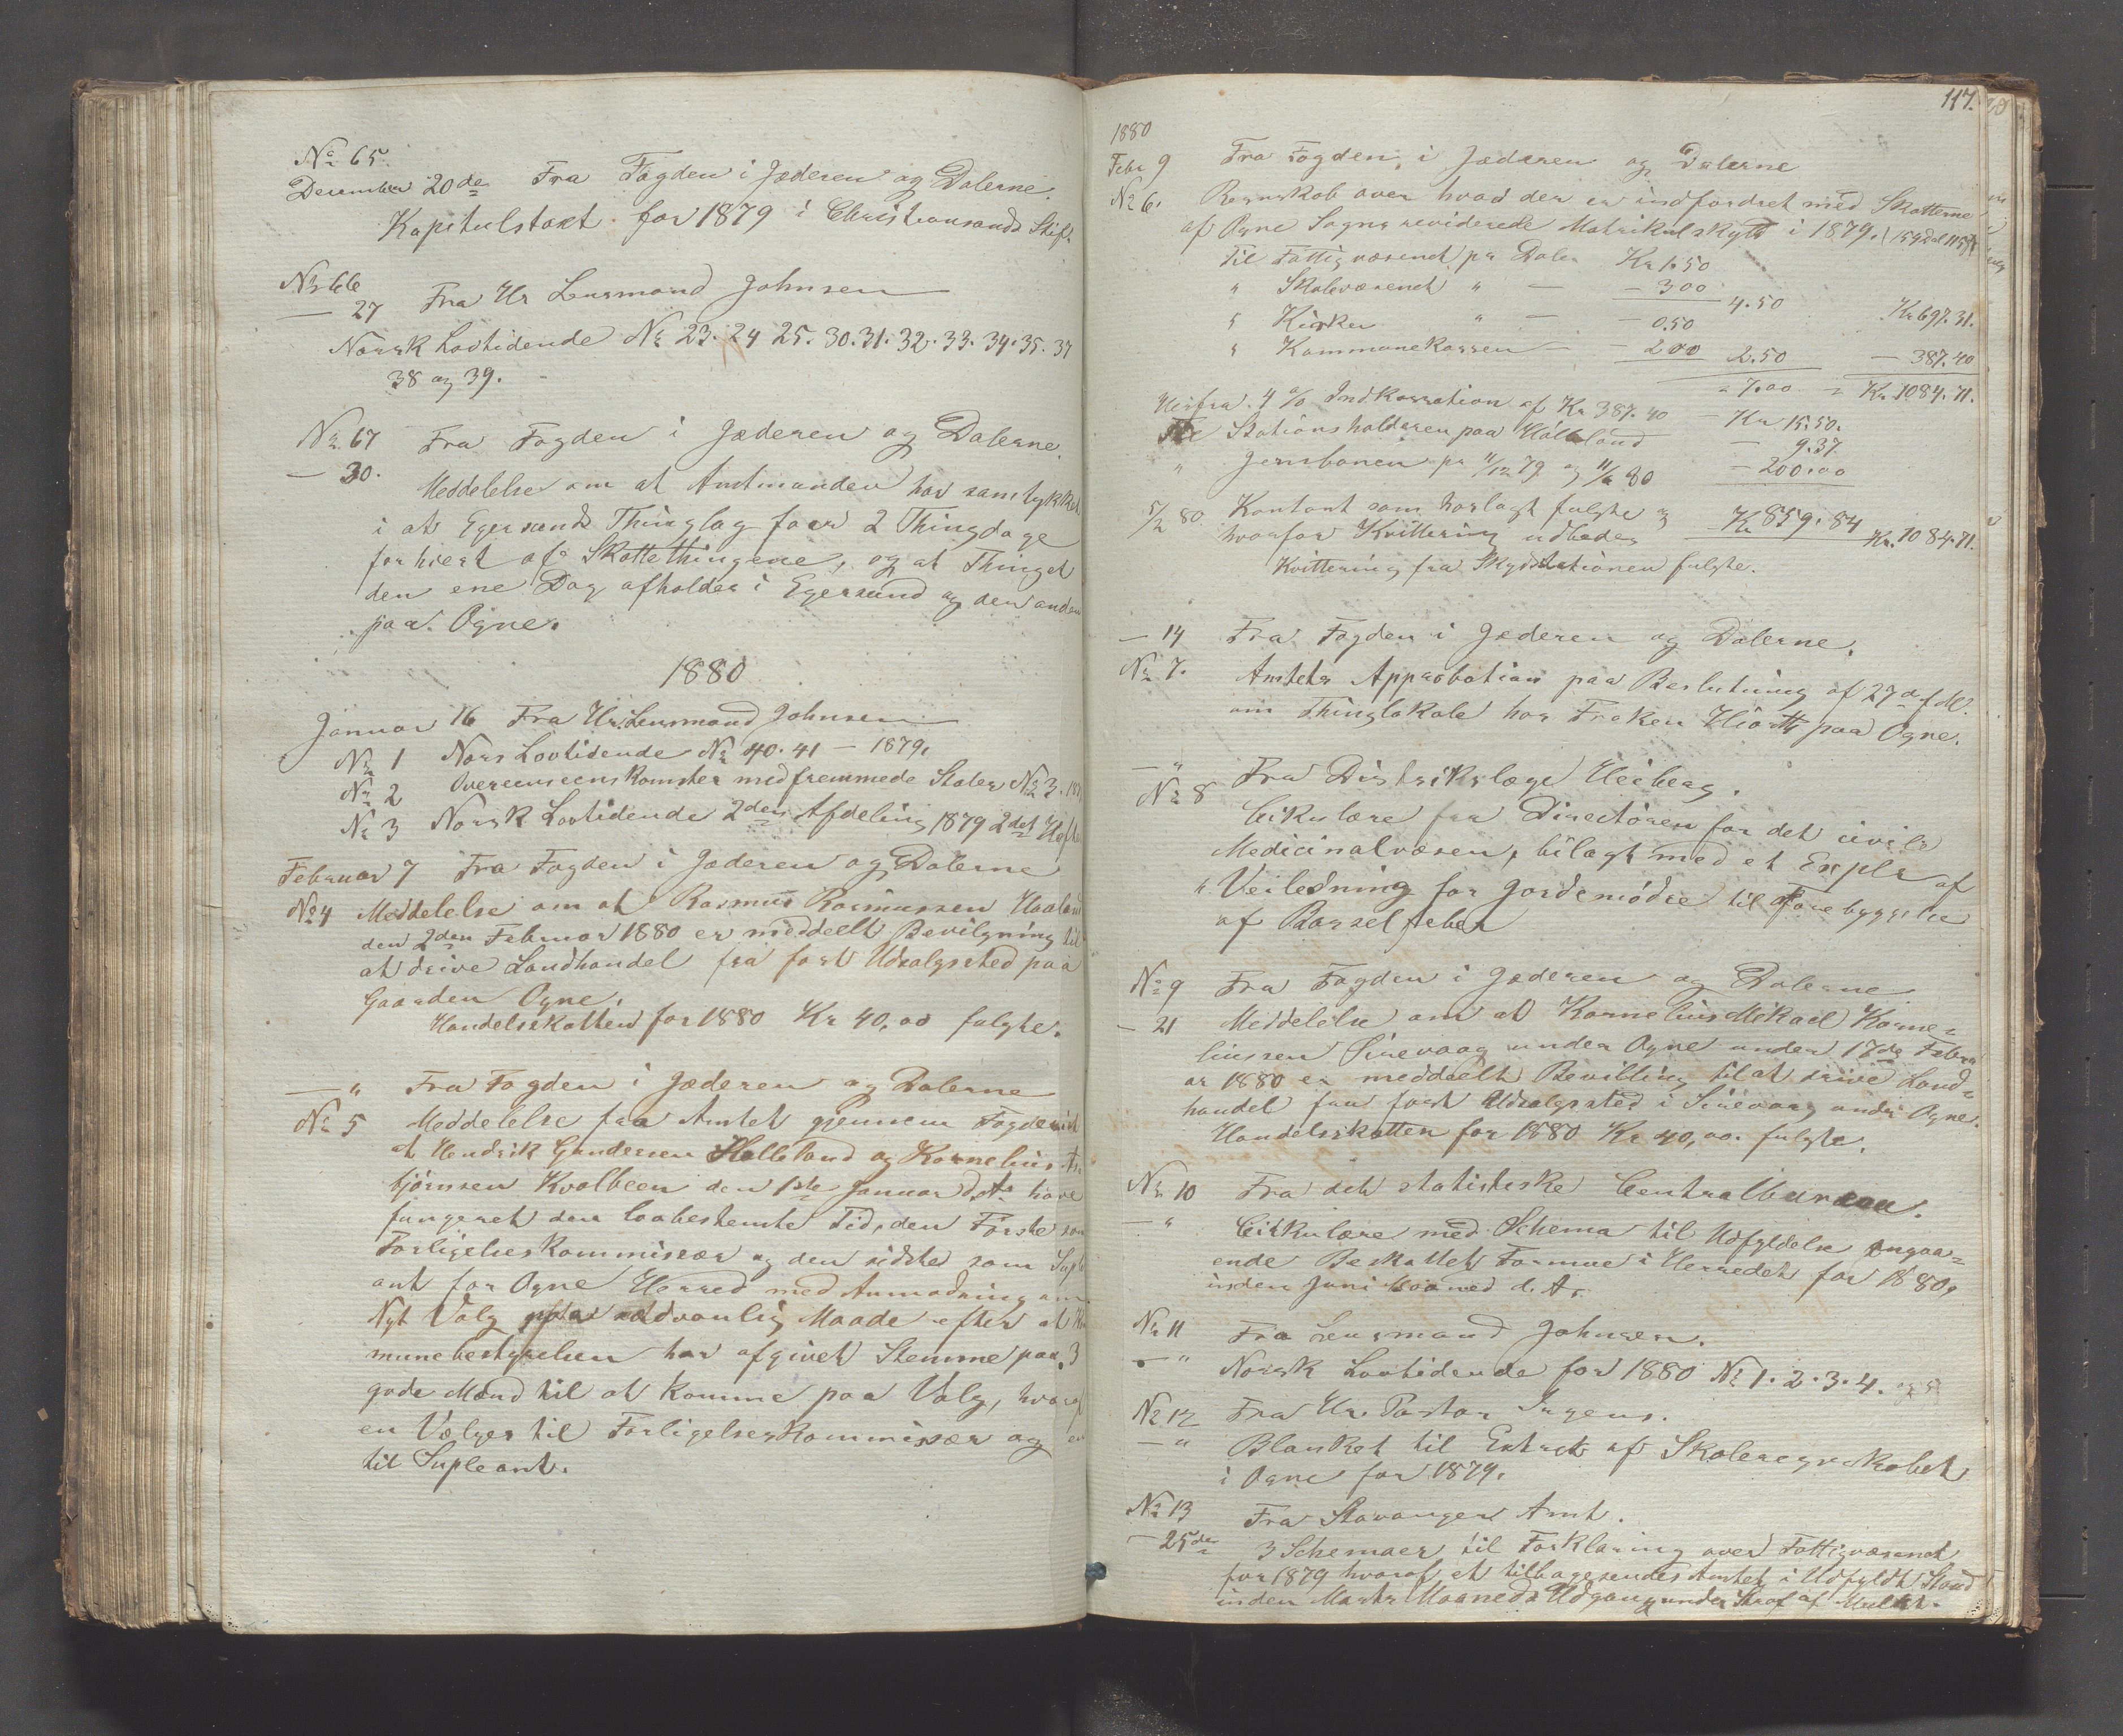 No 65.
December 20de Fra Fogden i Jæderen og Dalerne.
Kapitulstaxt for 1879 i Christiansands Stift
No 66
— 27 Fra Hr Lensmand Johnsen
Norsk Lovtidende No 23. 24 25. 30. 31. 32. 33. 34. 35. 37
38 og 39.
No 67 Fra Fogden i Jæderen og Dalerne.
— 30.
Meddelelse om at Amtmanden har samtykket
i at Egersunds Thinglag faar 2 Thingdage
for hvert af Skattethingene, og at Thinget
den ene Dag afholdes i Egersund og den anden
paa Ogne.
1880
Januar 16 Fra Hr. Lensmand Johnsen
No 1 Nors Lovtidende No 40. 41 — 1879.
No 2 Overeenskomster med fremmede Stater No 3.
No 3 Norsk Lovtidende 2den Afdeling 1879 2det Hefte
Februar 7 Fra Fogden i Jæderen og Dalerne
No 4 Meddelelse om at Rasmus Rasmussen Haaland
den 2den Februar 1880 er meddelt Bevilgning til
at drive Landhandel fra fast Udsalgssted paa
Gaarden Ogne.
Handelsskatten for 1880 Kr 40,00 fulgte.
— " Fra Fogden i Jæderen og Dalerne
No 5 Meddelelse fra Amtet gjennem Fogderiet
at Hendrik Gundersen Helleland og Kornelius
bjørnsen Kvalbeen den 1ste Januar d.A. have
fungeret den lovbestemte Tid, den Første som
Forligelseskommissær og den sidste som Supl
ant for Ogne Herred med Anmodning om
Nyt Valg paa sædvanlig Maade efter at Kom
munebestyrelsen har afgivet Stemme paa 3
gode Mænd til at komme paa Valg, hvoraf
en Vælges til Forligelseskommissær og en
til Supleant.
117.
1880
Febr 9 Fra Fogden i Jæderen og Dalerne
No 6. Regnskab over hvad der er indfordret med Skatterne
af Ogne Sogns reviderede Matrikulskyld i 1879.
Til Fattigvæsenet pr Daler Kr 1.50
" Skolevæsenet " — — 3.00 4.50 Kr 697.31.
" Kirken " — — 0.50
" Kommunekassen — — 2.00 2.50 — 387.40
= 7.00 = Kr. 1084.71.
Herfra 4 % Indkassation af Kr 387.40 — Kr 15.50.
Til Stationsholderen paa Helleland — 9.37
" Jernbanen pr 11/12 79 og 80 — 200.00
5/2 80 Kontant som vorlagt fulgte og
hvorfor Kvittering udbedes Kr 859.84 Kr. 1084.71.
Kvittering fra Skydsstationen fulgte.
— 14 Fra Fogden i Jæderen og Dalerne.
No 7. Amtets Approbation paa Beslutning af 27de f.M.
om Thinglokale hos Frøken Hiorth paa Ogne.
— " Fra Distrikslæge Heiberg.
No 8
Cikulære fra Directøren for det civile
Medicinalvæsen, bilagt med et Explr af
" Veiledning for Jordemødre til Forebyggelse
af Barselfeber
No 9 Fra Fogden i Jæderen og Dalerne
— 21 Meddelelse om at Kornelius Mikael Korne-
liussen Sirevaag under Ogne under 17de Febru
ar 1880 er meddelt Bevilling til at drive Land-
handel fra fast Udsalgssted i Sirevaag under Ogne.
Handelsskatten for 1880 Kr 40,00. fulgte.
No 10 Fra det statistiske Centralbureau.
— " Cirkulære med Schema til Udfyldelse angaa-
ende Beskattet Formue i Herredet for 1880,
inden Juni Maaned d.A.
No 11 Fra Lensmand Johnsen.
— " Norsk Lovtidende for 1880 No 1. 2. 3. 4. og 5
No 12 Fra Hr. Pastor
— " Blanket til Extrakt af Skoleregnskabet
i Ogne for 1879.
No 13 Fra Stavanger Amt.
— 25de 3 Schemaer til Forklaring over Fattigvæsenet
for 1879 hvoraf et tilbagesendes Amtet i Udfyldt Stand
inden Marts Maaneds Udgang under Straf af Mulkt.